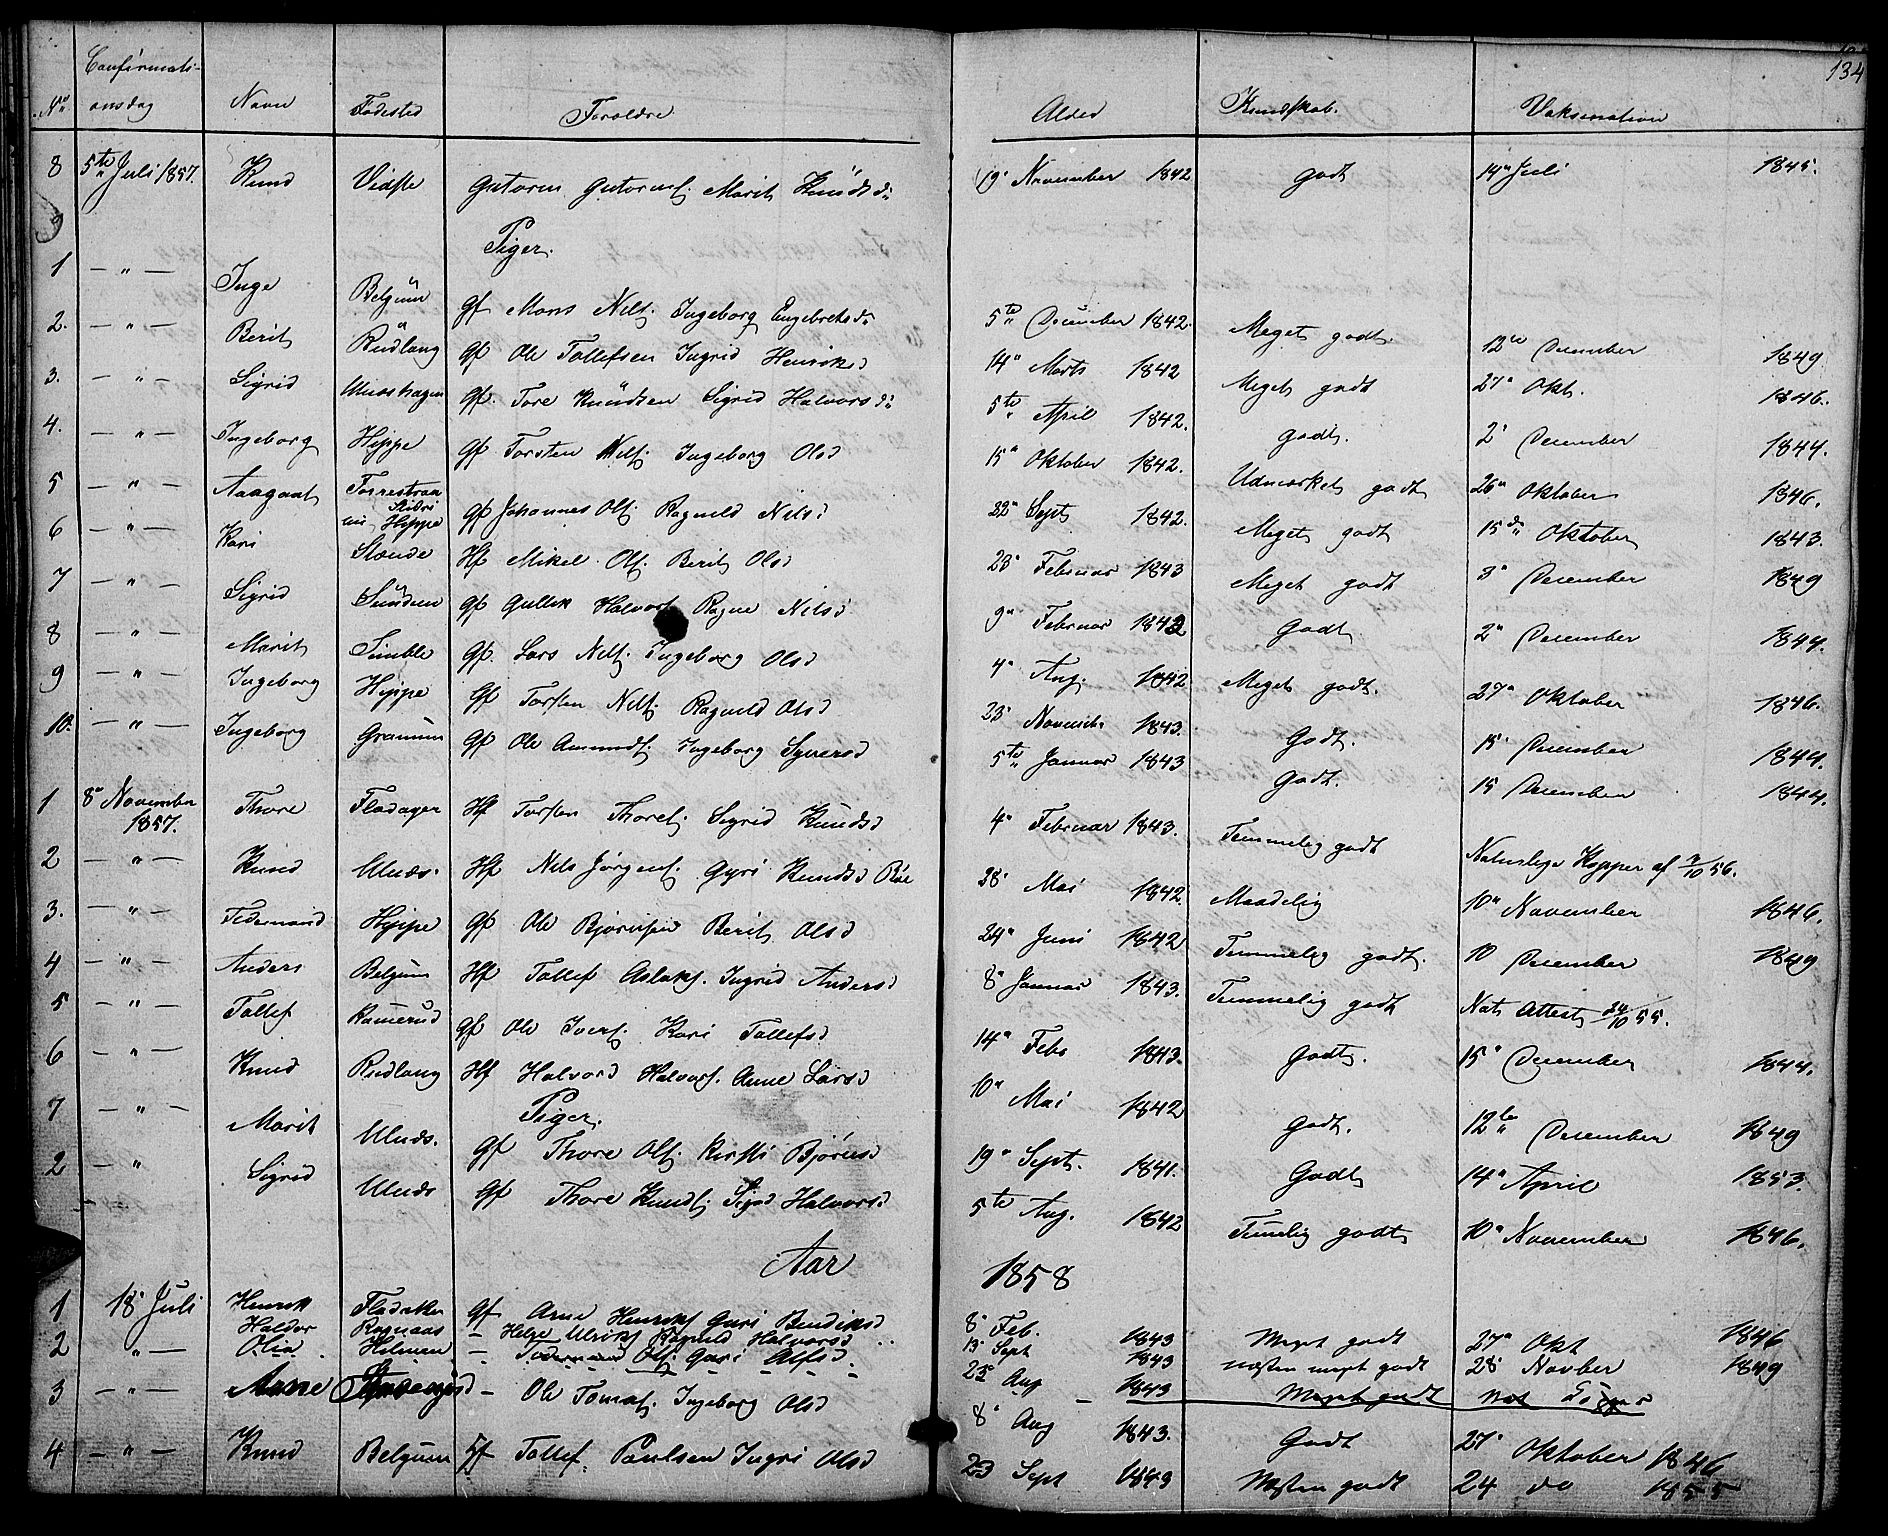 134
Confirmati-
No onsdag Navn Fødested Foreldre Alder Kundskab. Vaksination
8 5te Juli 1857. Knud Vidste Gutorm Gutormsf. Marit Knudsd. 19 November 1842 godt 14 Juli 1845.
9
Piger.
1 — " — Inge Belgum Gf Mons Nilsf. Ingeborg Engebretsd. 5te December 1842. Meget godt. 12te December 1849
2. — " — Berit Rudlang Gf Ole Tollefsen Ingrid Henriksd 14 Marts 1842 Meget godt 27 Okt. 1846.
3. — " — Sigrid Ulnæshagen Gf. Tore Knudsen Sigrid Halvorsd. 5te April 1842. godt. 2 December 1844.
4. — " — Ingeborg Hippe Gf Torsten Nilsf. Ingeborg Olsd 15 Oktober 1842. Udmærket godt 26 Oktober 1846.
5 — " — Aagaat Hippe Gf Johannes Olsf. Ragnild Nilsd 22 Sept 1842. Meget godt 15de Oktober 1843.
6 — " — Kari Stænde Hf Mikel Olsf. Berit Olsd 23 Februar 1843 Meget godt 8 December 1849
7 — " — Sigrid Sundem Gf Gullik Halvorsf Ragne Nilsd 9 Februar 1842 Godt 2 December 1844.
8 — " — Marit Semble Gf. Lars Nilsf. Ingeborg Olsd 4 Aug. 1842 Meget godt. 27 Oktober 1846.
9 — " — Ingeborg Hippe Gf Torsten Nilsf. Ragnild Olsd 23 Novemb. 1843. Godt. 15 December 1844.
10. — " — Ingeborg Gf Ole Amundsf. Ingeborg Syversd 5te Januar 1843 Godt. 15 December 1844.
1 8 November 1857. Thore Fladager Hf Torsten Thoresf. Sigrid Knudsd 4 Februar 1843. Temmelig godt Naturlige Kopper af 7/10 56.
2 — " — Knud Ulnæs. Hf Nils Jørgensf. Gyri Knudsd Bøe 28 Mai 1842. Maadelig 10 November 1846.
3. — " — Tidemand Hippe Gf Ole Bjørnsen Berit Olsd 24 Juni 1842 Temmelig godt. 10 December 1849
4 — " — Anders Belgum Hf Tollef Aslaksf. Ingrid Andersd 8 Januar 1843. Temmelig godt Nat. Attest 24/10 55.
5 — " — Tollef Kamerud Gf Ole Iversf. Kari Tollefsd 14 Feb. 1843. Godt. 15 December 1844.
6 — " — Knud Rudlang Hf Halvord Halvorsf. Anne Larsd 10 Mai 1842 Godt. 12te December 1849
Piger.
7 — " — Marit Ulnæs. Gf Thore Olsf. Kirsti Bjørnsd 19 Sept. 1841. Godt 14 April 1853.
2 — " Sigrid Ulnæs Gf Thore Knudsf. Sigrid Halvorsd 5te Aug. 1842 Temelig godt 10 November 1846.
Aar 1858
1 18 Juli Henrik Fladaker Gf Arne Henriksf Guri Bendiksd 8 Feb. 1843 Meget godt 27 Okt 1846
Haldor Ragnaas — Helge Ulriksf Ragnild Halvorsd 13 Sept 1843 næsten meget godt 28 Novber 1849
2 " — Olia Helmen — Tidemand Olsf. Guri Alfsd 23 Aug 1843 Meget godt
3 — " — Arne — Ole Tomasf. Ingeborg Olsd 8 Aug 1843. Godt 27 Oktober 1846
4 — " — Knud Belgum Gf Tollef Paulsen Ingri Olsd 23 Sept 1843 Næsten godt 24 do 1855